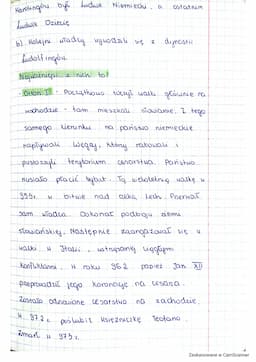 Karolingów był Ludwik Niemiecki, a ostatnim
Ludwik Dziecię
b) Kolejni władcy wywodzili się z dynastii
Ludolfingów
Najważniejsi z nich to:
Otton I - Początkowo toczył walki głównie na
wschodzie - tam mieszkali słowianie. Z tego
samego kierunku na państwo niemieckie
napływali Węgrzy, którzy rabowali i
pustoszyli terytorium cesarstwa. Państwo
musiało płacić trybut. Tą wieloletnią walkę w
955r. w bitwie nad rzeką Lech. Pokonał
sam władca. Dokonał podboju ziemi
słowiańskiej. Następnie zaangażował się w
walki w Italii, wstrząsanej ciągłymi
konfliktami. W roku 962 papież Jan XII
przeprowadził jego koronację na cesarza.
Zostało odnowione cesarstwo na zachodzie.
W 972 r. poślubił księżniczkę Teofano.
Zmarł w 973 r.
Zeskanowane w CamScanner